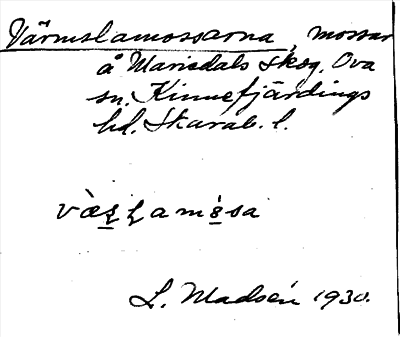 Värmslamossarna, mossar
å Mariedals skog, Ova
sn. Kinnefjärdings
hd. Skarab. l.
L. Madsén 1930.